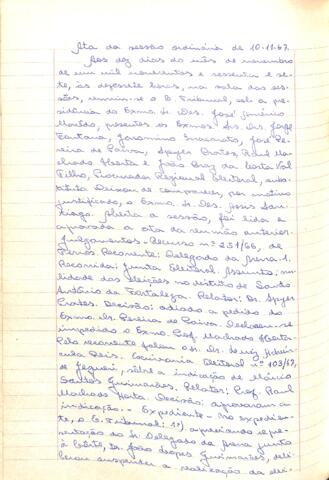 Ata da sessão ordinária de 10-11-67.
Aos dez dias do mês de novembro
de um mil novecentos e sessenta e se-
te, às dezessete horas, na sala das ses-
sões, reuniu-se o E. Tribunal, sob a pre-
sidência do Exmo. Sr. Des. José Américo
Macêdo, presentes os Exmos. Srs. Drs. Jorge
Fontana, Jeronimo José Pe-
reira de Paiva, Spyer Prates, Raul Ma-
chado Horta e João Braz da Costa Val
Filho, Procurador Regional Eleitoral, subs-
tituto. Deixou de comparecer, por motivo
justificado, o Exmo. Sr. Des. José San-
tiago. Aberta a sessão, foi lida e
aprovada a ata da reunião anterior.
Julgamentos - Recurso nº 251/66, de
Recorrente: Delegado da Arena-1.
Recorrida: Junta Eleitoral. Assunto: nu-
lidade das eleições no distrito de Santo
Antônio da Fortaleza. Relator: Dr. Spyer
Prates. Decisão: adiado a pedido do
Exmo. Dr. Pereira de Paiva. Declarou-se
impedido o Exmo. Prof. Machado Horta.
Pelo recorrente falou o Sr. Dr.
Reis. Escrivania Eleitoral nº 103/67,
de Jequeri, sôbre a indicação de Márcio
Santos Guimarães. Relator: Prof. Raul
Machado Horta. Decisão: aprovaram a
indicação. - Expediente - No expedien-
te, o E. Tribunal: 1º) apreciando repre-
sentação do Sr. Delegado da Arena junto
à Côrte, Dr. João Lopes Guimarães, deli-
berou suspender a realização da elei-